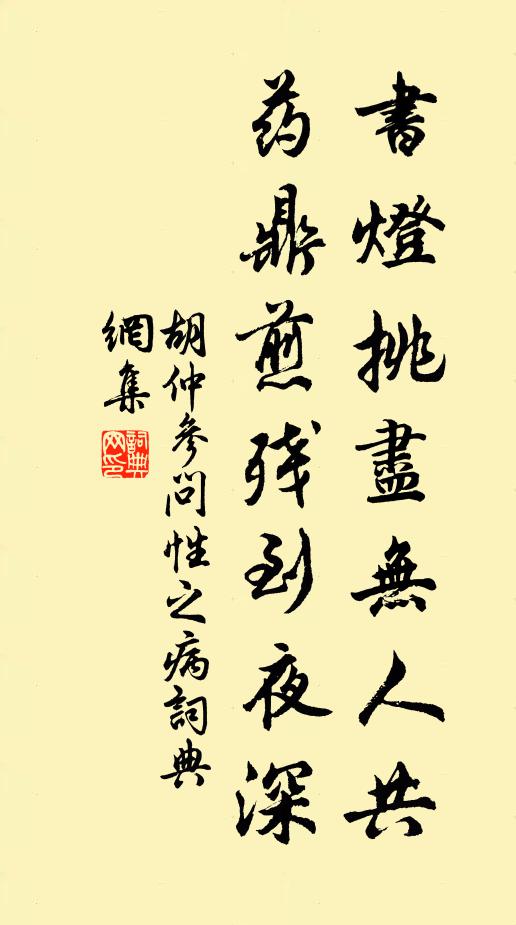 書燈挑盡無人共
药鼎煎残到夜深
胡仲參问性之病詞典
網集
詞典网印